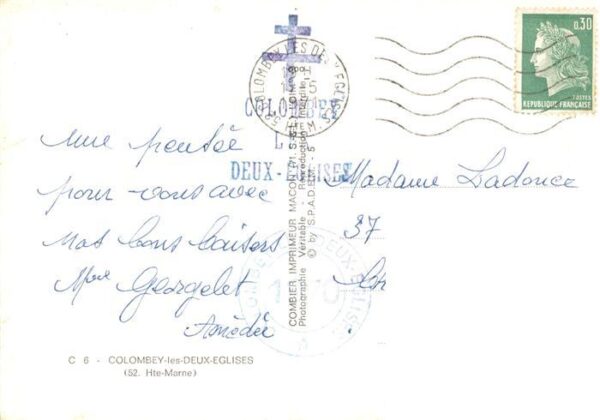 0,30
POSTES
REPUBLIQUE FRANÇAISE
COLOMBEY LES DEUX EGLISES
COLOMBEY
L
DEUX-EGLISES
une pensée
pour vous avec
nos bons baisers
Mme Georgelet
Amédée
Madame Ladouce
37
COMBIER IMPRIMEUR MACON
Photographie Véritable - Reproduction Interdite
© by S.P.A.D.E.M. - 5
COLOMBEY DEUX-EGLISES
C 6 - COLOMBEY-les-DEUX-EGLISES
(52. Hte-Marne)